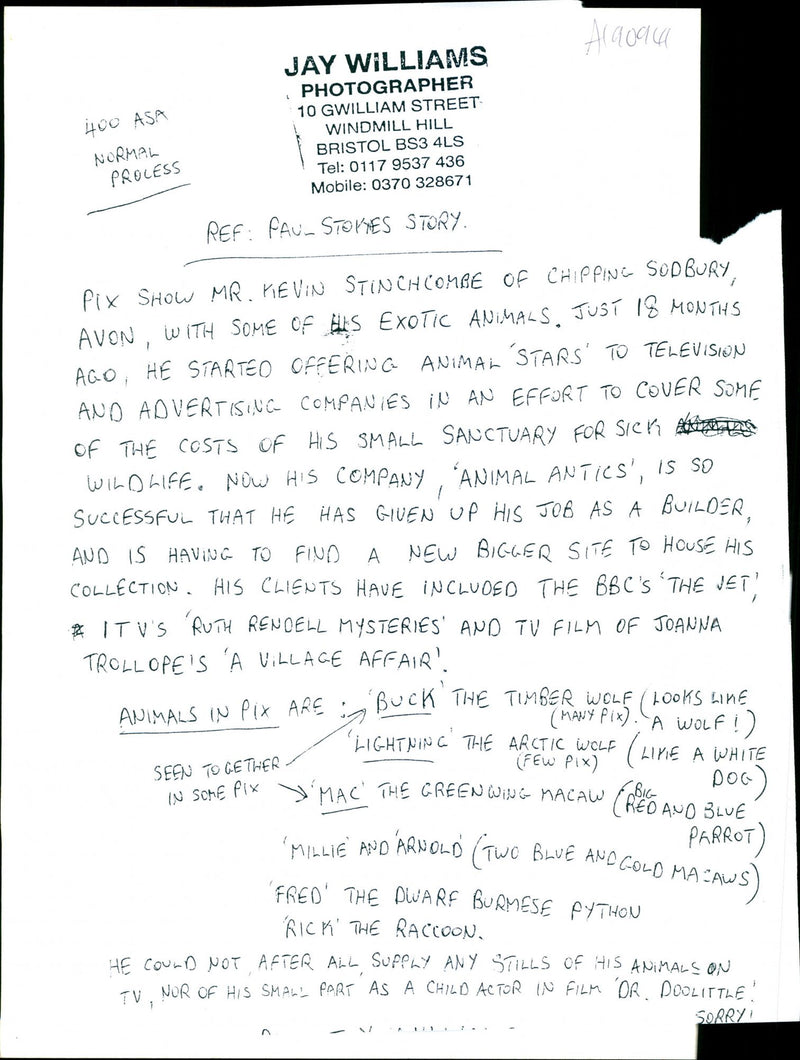 A190969
JAY WILLIAMS
PHOTOGRAPHER
10 GWILLIAM STREET
WINDMILL HILL
BRISTOL BS3 4LS
Tel: 0117 9537 436
Mobile: 0370 328671
400 ASA
NORMAL
PROCESS
REF: PAUL STOKES STORY.
PIX SHOW MR. KEVIN STINCHCOMBE OF CHIPPING SODBURY,
AVON, WITH SOME OF HIS EXOTIC ANIMALS. JUST 18 MONTHS
AGO, HE STARTED OFFERING ANIMAL 'STARS' TO TELEVISION
AND ADVERTISING COMPANIES IN AN EFFORT TO COVER SOME
OF THE COSTS OF HIS SMALL SANCTUARY FOR SICK
WILDLIFE. NOW HIS COMPANY, 'ANIMAL ANTICS', IS SO
SUCCESSFUL THAT HE HAS GIVEN UP HIS JOB AS A BUILDER,
AND IS HAVING TO FIND A NEW BIGGER SITE TO HOUSE HIS
COLLECTION. HIS CLIENTS HAVE INCLUDED THE BBC'S 'THE VET',
ITV'S 'RUTH RENDELL MYSTERIES' AND TV FILM OF JOANNA
TROLLOPE'S 'A VILLAGE AFFAIR'.
ANIMALS IN PIX ARE: 'BUCK' THE TIMBER WOLF (LOOKS LIKE
(MANY PIX). A WOLF!)
'LIGHTNING' THE ARCTIC WOLF (LIKE A WHITE
(FEW PIX) DOG)
SEEN TOGETHER
IN SOME PIX
'MAC' THE GREENWING MACAW (BIG
RED AND BLUE
PARROT)
'MILLIE' AND 'ARNOLD' (TWO BLUE AND GOLD MACAWS)
'FRED' THE DWARF BURMESE PYTHON
'RICK' THE RACCOON.
HE COULD NOT, AFTER ALL, SUPPLY ANY STILLS OF HIS ANIMALS ON
TV, NOR OF HIS SMALL PART AS A CHILD ACTOR IN FILM 'DR. DOOLITTLE'.
SORRY!